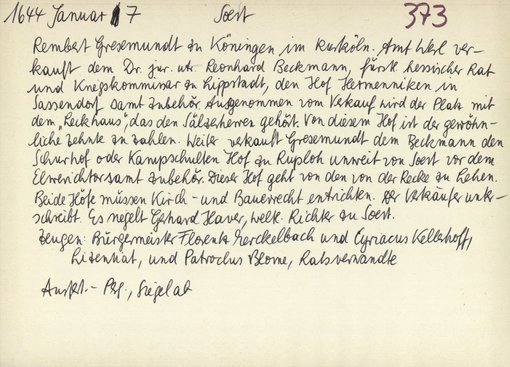 1644 Januar 7 Soest 373
Rembert Gresemundt zu Köningen im kurköln. Amt Werl ver-
kauft dem Dr. jur. utr. Leonhard Beckmann, fürstl. hessischer Rat
und Kriegskommissar zu Lippstadt, den Hof Hermenniken in
Sassendorf samt Zubehör. Ausgenommen vom Verkauf wird der Platz mit
dem "Leckhaus", das den Sälzeherren gehört. Von diesem Hof ist der gewöhn-
liche Zehnte zu zahlen. Weiter verkauft Gresemundt dem Beckmann den
Schurhof oder Kampschulten Hof zu Ruploh unweit von Soest vor dem
samt Zubehör. Dieser Hof geht von den von der Recke zu Lehen.
Beide Höfe müssen Kirch- und Bauerrecht entrichten. Der Verkäufer unter-
schreibt. Es siegelt Gerhard Haver, weltl. Richter zu Soest.
Zeugen: Bürgermeister Florenz Merckelbach und Cyriacus Kellerhoff,
Lizentiat, und Patroclus Blome, Ratsverwandte
Ausf. - Pg., Siegel ab